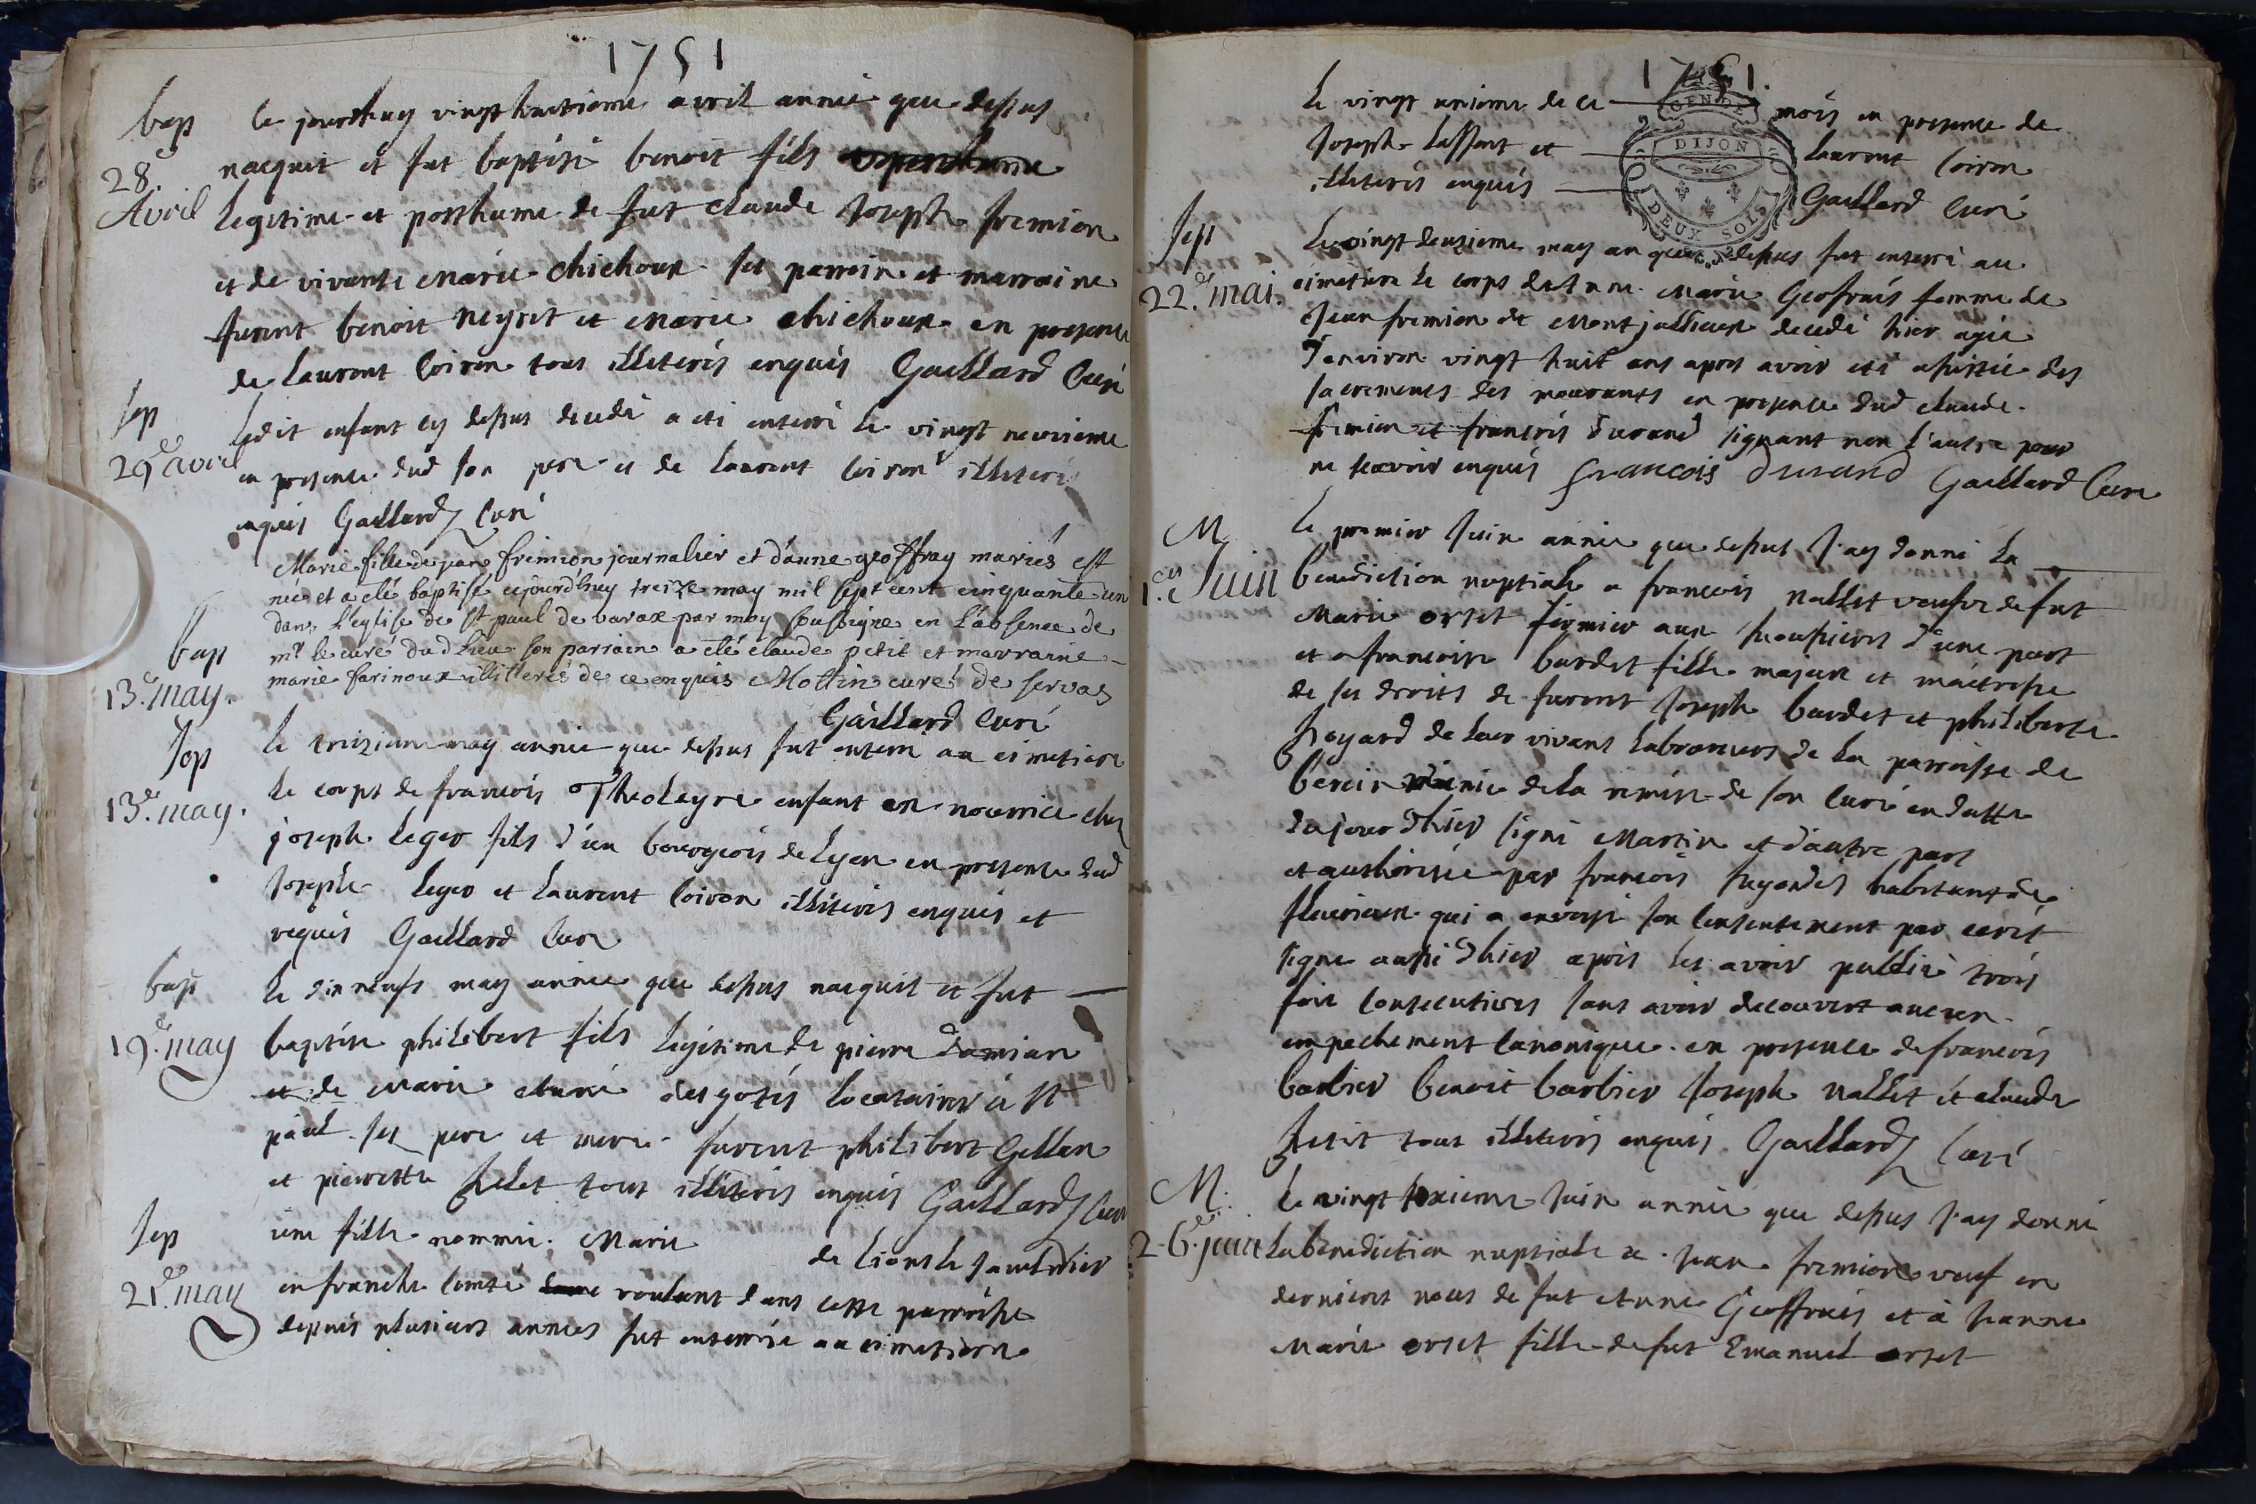 1751
bap
28.e
Avril
le jourdhuy vingt huitieme avril année que dessus
nacquit et fut baptisé benoit fils
legitime et posthume de fut claude Joseph fremion
et de vivante Marie chichoux ses parrein et marraine
furent benoit neyret et Marie chichoux en presence
de laurent Coiron tous illiterés enquis Gaillard Curé
sep
29.e avril
ledit enfant cy dessus decedé a eté enterré le vingt neuvieme
en presence dud son pere et de laurent Coiron illiteré
enquis Gaillard Curé
bap
13.e may.
Marie fille de jean fremion journalier et d'anne geoffray mariés est
née et a été baptisé cejourd'huy treize may mil sept cent cinquante un
dans l'eglise de st paul de varax par moy soussigné en l'absence de
mr le curé dud lieu son parrain a été claude petit et marraine
marie farinoux illiterés de ce enquis Mottin curé de servas
Gaillard Curé
sep
13.e may.
le treizieme may année que dessus fut enterré au cimetiere
le corps de francois Theoleyre enfant en nourrice chez
joseph leger fils d'un bourgeois de Lyon en presence dud
Joseph leger et laurent Coiron illiterés enquis et
requis Gaillard Curé
bap
19.e may
le dix neuf may année que dessus nacquit et fut
baptisé philibert fils legitime de pierre Damian
et de Marie des gotés locataires à st
paul ses pere et mere furent philibert Gellan
et pierrette tous illiterés enquis Gaillard Curé
sep
21.e may
une fille nommée Marie de lions le saulnier
en franche Comté roulant dans cette parroisse
depuis plusieurs années fut enterrée au cimetiere
1751.
le vingt unieme de ce mois en presence de
Joseph lassont et laurent Coiron
illiterés enquis Gaillard Curé
GEN DE
DIJON
DEUX SOLS
sep
22.e mai.
le vingt deuxieme may an que dessus fut enterré au
cimetiere le corps de Anne Marie Geofrais femme de
Jean fremion de Montjallieux decedé hier agée
d'environ vingt huit ans apres avoir eté assistée des
sacrements des mourants en presence dud claude
fremion et francois durand signant non l'autre pour
ne scavoir enquis francois durand Gaillard Curé
M
1.er Juin
le premier Juin année que dessus J'ay donné la
benediction nuptiale a francois nallet veufve de fut
Marie orset fermier aux d'une part
et a francoise bardet fille majeure et maitresse
de ses droits de furent Joseph bardet et philiberte
poyard de leur vivant laboureurs de la parroisse de
bereins munie de la remise de son Curé en datte
du jour d'hier signé Martin et d'autre part
et authorisée par francois habitant de
fleurieux qui a envoyé son consentement par ecrit
signé aussi d'hier apres les avoir publié trois
fois consecutives sans avoir decouvert aucun
empechement canonique en presence de francois
barbier benoit barbier Joseph nallet et claude
petit tous illiterés enquis Gaillard Curé
M.
26.e juin
le vingt sixieme Juin année que dessus J'ay donné
la benediction nuptiale a Jean fremion veuf en
dernieres noces de fut Anne Geoffrais et à Jeanne
Marie orset fille de fut Emanuel orset